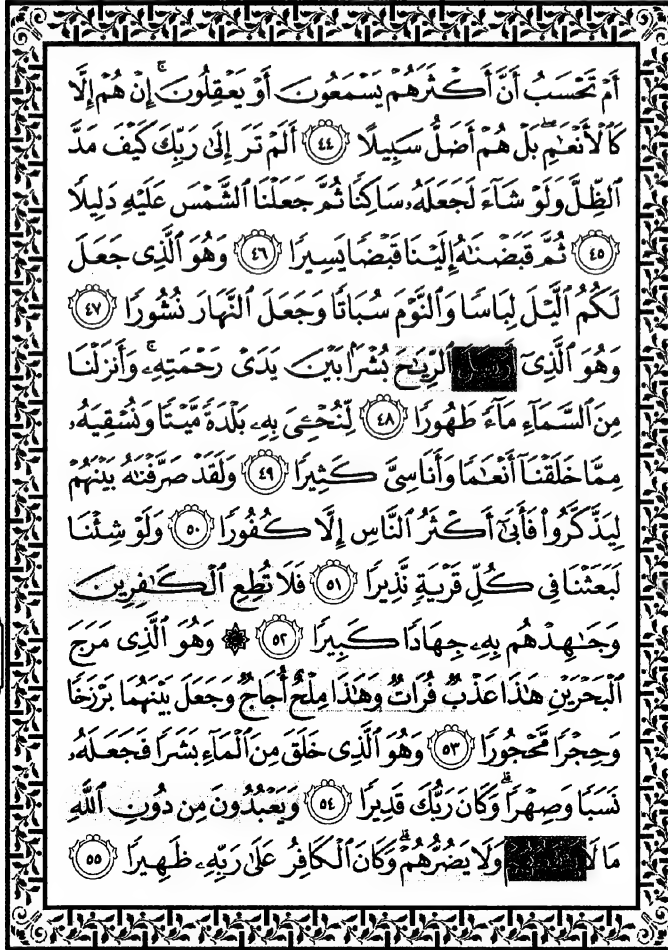 أَمْ تَحْسَبُ أَنَّ أَكْثَرَهُمْ يَسْمَعُونَ أَوْ يَعْقِلُونَ ۚ إِنْ هُمْ إِلَّا
كَالْأَنْعَٰمِ ۖ بَلْ هُمْ أَضَلُّ سَبِيلًا ٤٤ أَلَمْ تَرَ إِلَىٰ رَبِّكَ كَيْفَ مَدَّ
ٱلظِّلَّ وَلَوْ شَآءَ لَجَعَلَهُۥ سَاكِنًا ثُمَّ جَعَلْنَا ٱلشَّمْسَ عَلَيْهِ دَلِيلًا
٤٥ ثُمَّ قَبَضْنَٰهُ إِلَيْنَا قَبْضًا يَسِيرًا ٤٦ وَهُوَ ٱلَّذِى جَعَلَ
لَكُمُ ٱلَّيْلَ لِبَاسًا وَٱلنَّوْمَ سُبَاتًا وَجَعَلَ ٱلنَّهَارَ نُشُورًا ٤٧
وَهُوَ ٱلَّذِىٓ أَرْسَلَ ٱلرِّيَٰحَ بُشْرًۢا بَيْنَ يَدَىْ رَحْمَتِهِۦ ۚ وَأَنزَلْنَا
مِنَ ٱلسَّمَآءِ مَآءً طَهُورًا ٤٨ لِّنُحْـِۧىَ بِهِۦ بَلْدَةً مَّيْتًا وَنُسْقِيَهُۥ
مِمَّا خَلَقْنَآ أَنْعَٰمًا وَأَنَاسِىَّ كَثِيرًا ٤٩ وَلَقَدْ صَرَّفْنَٰهُ بَيْنَهُمْ
لِيَذَّكَّرُوا۟ فَأَبَىٰٓ أَكْثَرُ ٱلنَّاسِ إِلَّا كُفُورًا ٥٠ وَلَوْ شِئْنَا
لَبَعَثْنَا فِى كُلِّ قَرْيَةٍ نَّذِيرًا ٥١ فَلَا تُطِعِ ٱلْكَٰفِرِينَ
وَجَٰهِدْهُم بِهِۦ جِهَادًا كَبِيرًا ٥٢ ۞ وَهُوَ ٱلَّذِى مَرَجَ
ٱلْبَحْرَيْنِ هَٰذَا عَذْبٌ فُرَاتٌ وَهَٰذَا مِلْحٌ أُجَاجٌ وَجَعَلَ بَيْنَهُمَا بَرْزَخًا
وَحِجْرًا مَّحْجُورًا ٥٣ وَهُوَ ٱلَّذِى خَلَقَ مِنَ ٱلْمَآءِ بَشَرًا فَجَعَلَهُۥ
نَسَبًا وَصِهْرًا ۗ وَكَانَ رَبُّكَ قَدِيرًا ٥٤ وَيَعْبُدُونَ مِن دُونِ ٱللَّهِ
مَا لَا وَلَا يَضُرُّهُمْ ۗ وَكَانَ ٱلْكَافِرُ عَلَىٰ رَبِّهِۦ ظَهِيرًا ٥٥